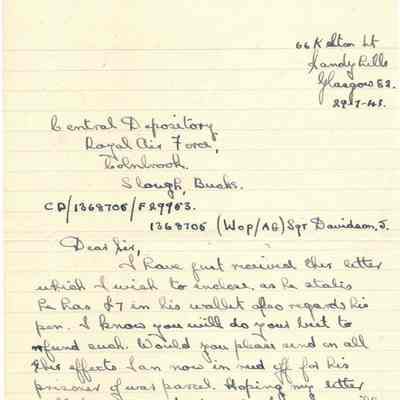 66 Kelton St
Sandyhills
Glasgow E2.
29-7-43.
Central Depository
Royal Air Force,
Colnbrook.
Slough, Bucks.
CD/1368706/F29953.
1368706 (Wop/AG) Sgt Davidson, J.
Dear Sir,
I have just received this letter
which I wish to inclose, as he states
he has £7 in his wallet also regards his
pen. I know you will do your best to
refund such. Would you please send on all
this effects I am now in need off for his
prisoner of war parcel. Hoping my letter